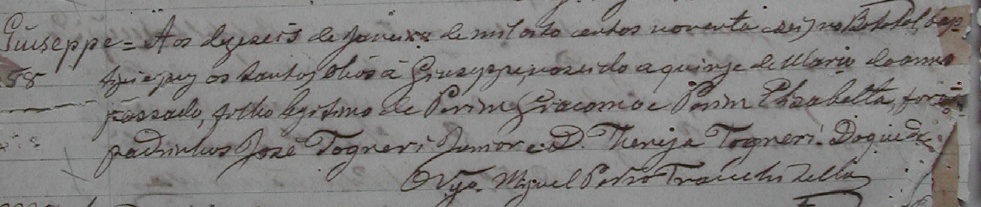 Giuseppe = Aos dezeseis de Janeiro de mil oito centos noventa e seis no Botafel, bap-
58 tizei puz os Santos Oleos a Giuseppe nascido a quinze de Março do anno
passado, filho legitimo de Perim Giacomo e Perim Elisabetta, foram
padrinhos José Togneri Junior e D. Thereja Togneri. Do que dei
O Vig.º Miguel Pedro